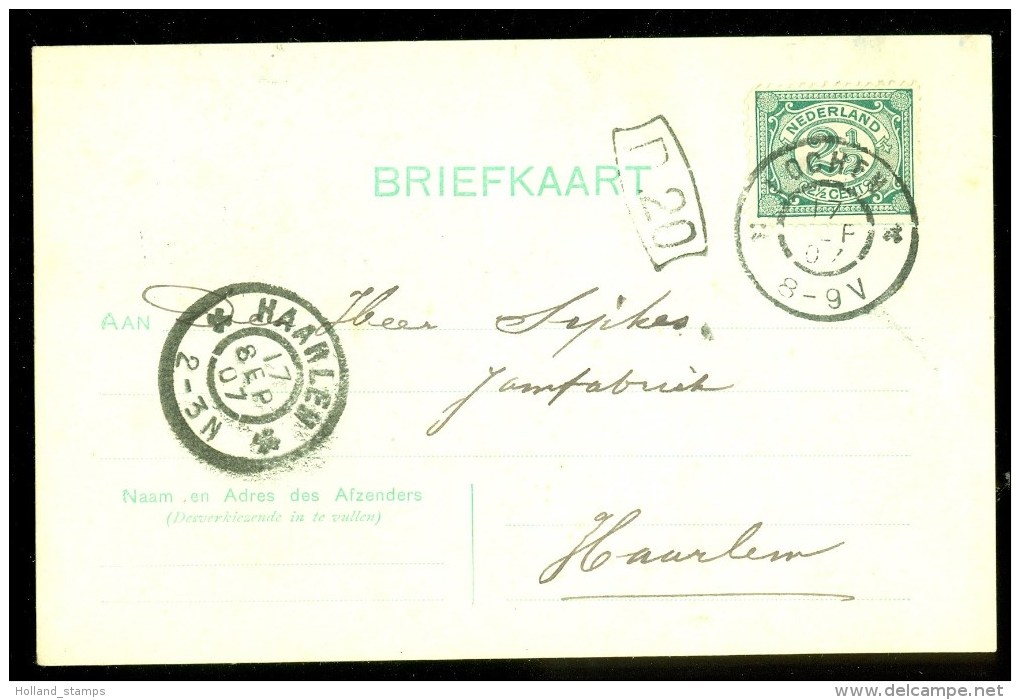 NEDERLAND
2½
2½ CENT
OCHEM
17
8-9V
BRIEFKAART
D 20
AAN De Heer Sijkes
Jamfabriek
HAARLEM
17
SEP
07
2-3N
Naam en Adres des Afzenders
(Desverkiezende in te vullen)
Haarlem
Holland_stamps
www.delcampe.net